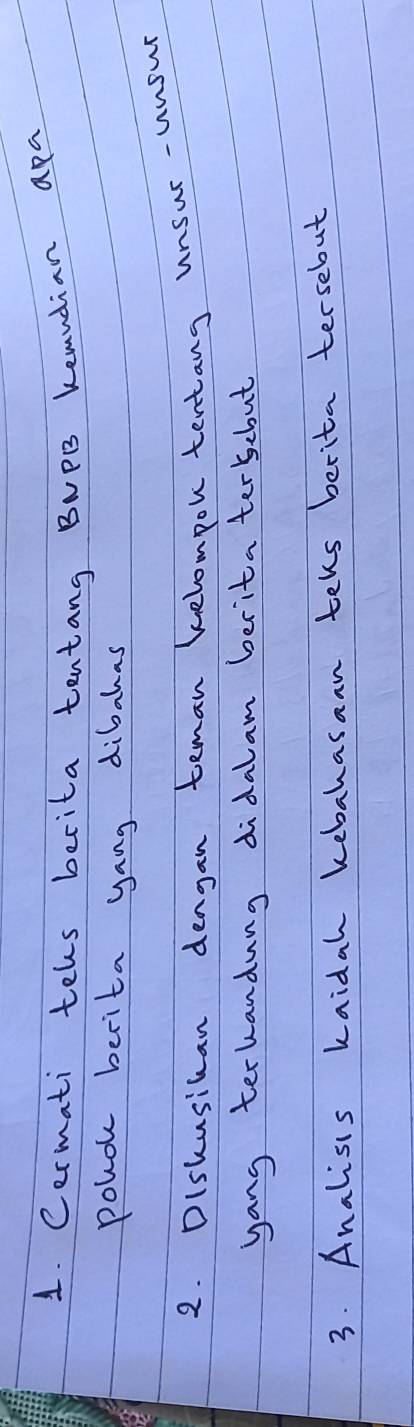 1. Cermati teks berita tentang BNPB kemudian apa
pokok berita yang dibahas
2. Diskusikan dengan teman kelompok tentang unsur-unsur
yang terkandung didalam berita tersebut
3. Analisis kaidah kebahasaan teks berita tersebut